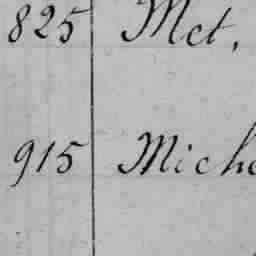 825 Met,
915 Mich